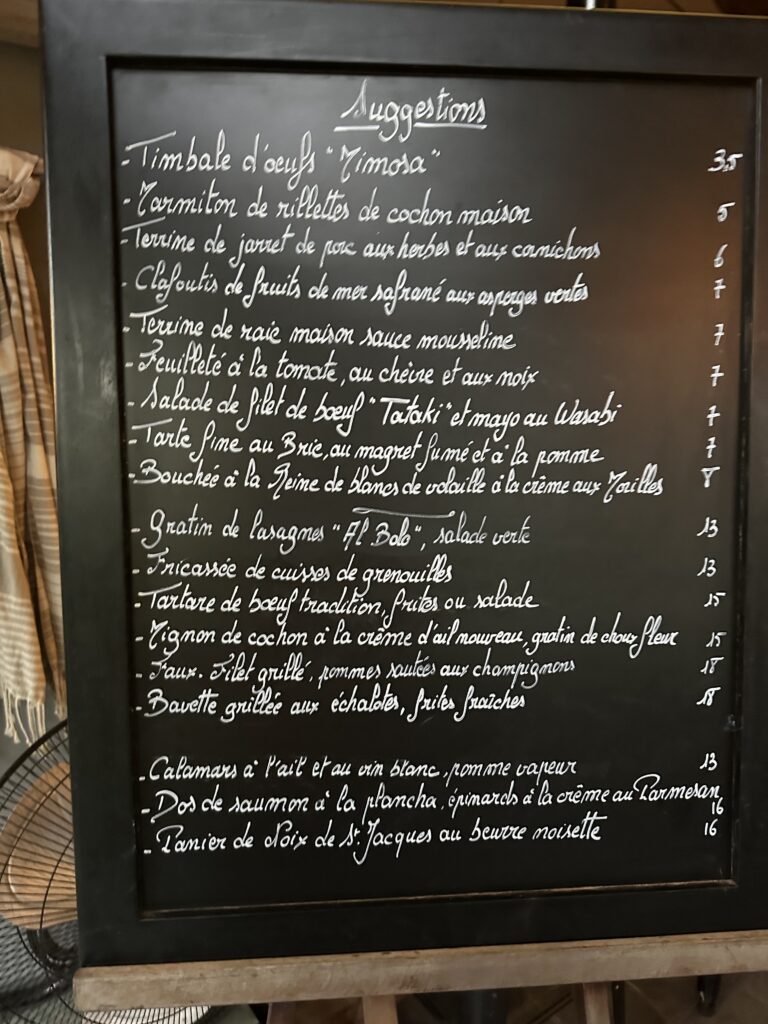 Suggestions
- Timbale d'œufs "Mimosa" 3,5
- Marmiton de rillettes de cochon maison 5
- Terrine de jarret de porc aux herbes et aux cornichons 6
- Clafoutis de fruits de mer safrané aux asperges vertes 7
- Terrine de raie maison sauce mousseline 7
- Feuilleté à la tomate, au chèvre et aux noix 7
- Salade de filet de bœuf "Tataki" et mayo au Wasabi 7
- Tarte fine au Brie, au magret fumé et à la pomme 7
- Bouchée à la Reine de blancs de volaille à la crème aux Morilles 8
- Gratin de lasagnes "Al Bolo", salade verte 13
- Fricassée de cuisses de grenouilles 13
- Tartare de bœuf tradition, frites ou salade 15
- Mignon de cochon à la crème d'ail nouveau, gratin de choux fleur 15
- Faux-Filet grillé, pommes sautées aux champignons 18
- Bavette grillée aux échalotes, frites fraîches 18
- Calamars à l'ail et au vin blanc, pomme vapeur 13
- Dos de saumon à la plancha, épinards à la crème au Parmesan 16
- Panier de Noix de St Jacques au beurre noisette 16